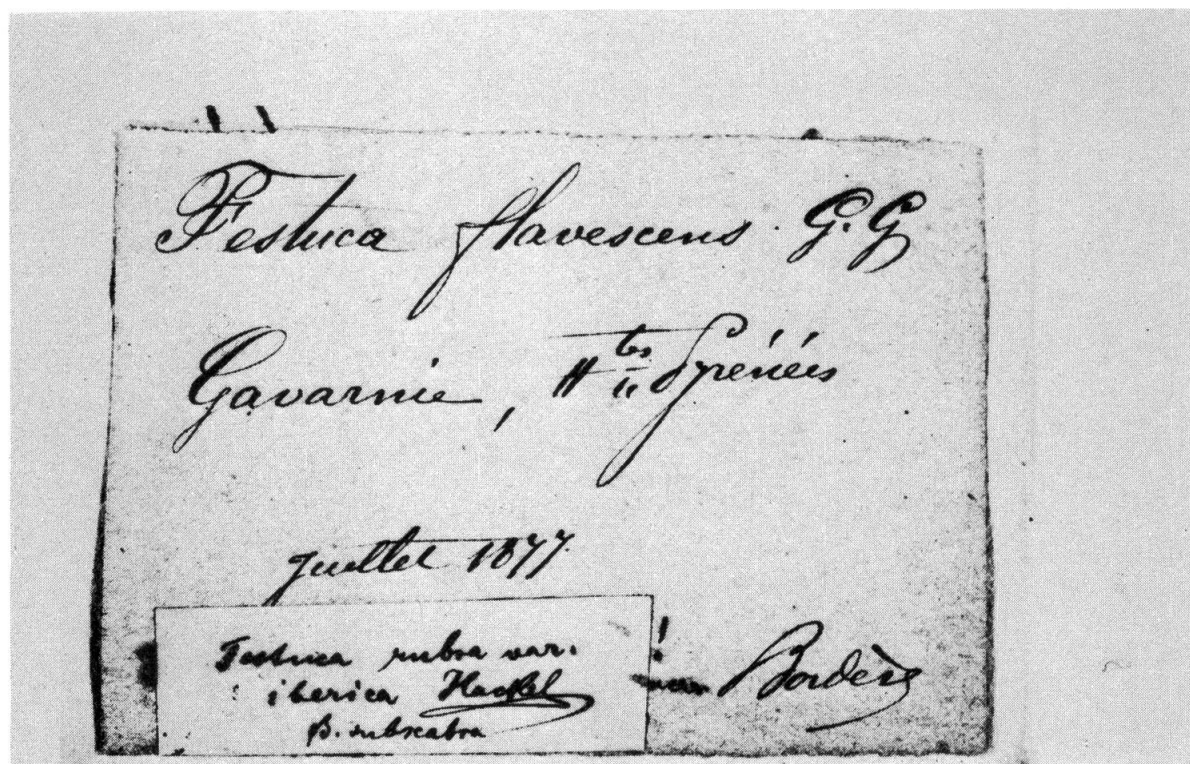 Festuca flavescens. G.G
Gavarnie, Htes Pyrénées
juillet 1877
Festuca rubra var.
iberica Hackel
β. subscabra
! Bordère